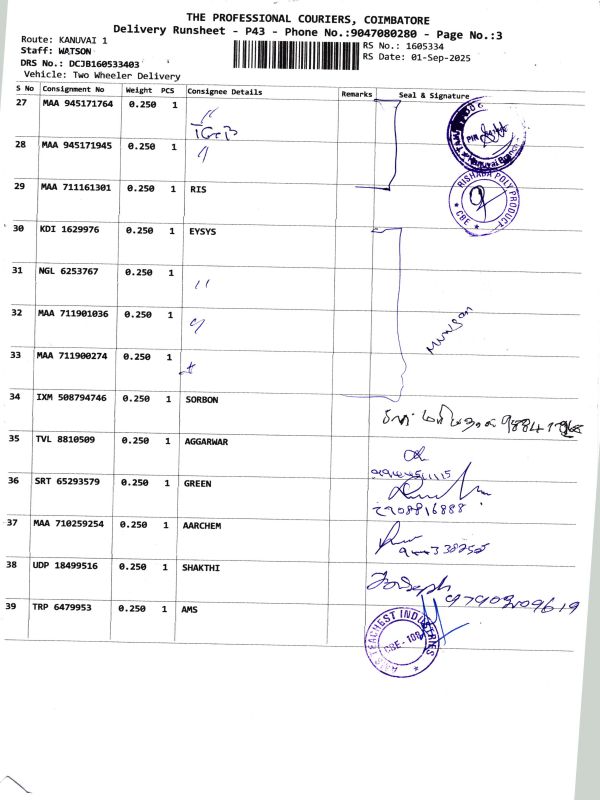 THE PROFESSIONAL COURIERS, COIMBATORE
Delivery Runsheet - P43 - Phone No.:9047080280 - Page No.:3
Route: KANUVAI 1
RS No.: 1605334
Staff: WATSON
RS Date: 01-Sep-2025
DRS No.: DCJB160533403
Vehicle: Two Wheeler Delivery
S No Consignment No Weight PCS Consignee Details Remarks Seal & Signature
27 MAA 945171764 0.250 1 "
28 MAA 945171945 0.250 1 "
29 MAA 711161301 0.250 1 RIS
RISHABA POLY PRODUCT
CBE
30 KDI 1629976 0.250 1 EYSYS
31 NGL 6253767 0.250 1 "
32 MAA 711901036 0.250 1 "
33 MAA 711900274 0.250 1
34 IXM 508794746 0.250 1 SORBON
35 TVL 8810509 0.250 1 AGGARWAR
36 SRT 65293579 0.250 1 GREEN
37 MAA 710259254 0.250 1 AARCHEM
38 UDP 18499516 0.250 1 SHAKTHI
Joseph
39 TRP 6479953 0.250 1 AMS